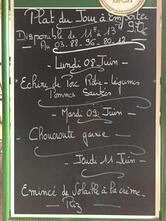 Plat du Jour à Emporter
Disponible de 11h à 13h
Au 03.88.96.80.12
- Lundi 08 Juin -
Echine de Porc Rôtie - Légumes
Pommes Sautées
- Mardi 09 Juin -
- Choucroute garnie -
- Jeudi 11 Juin -
Emincé de Volaille à la crème
- Riz -